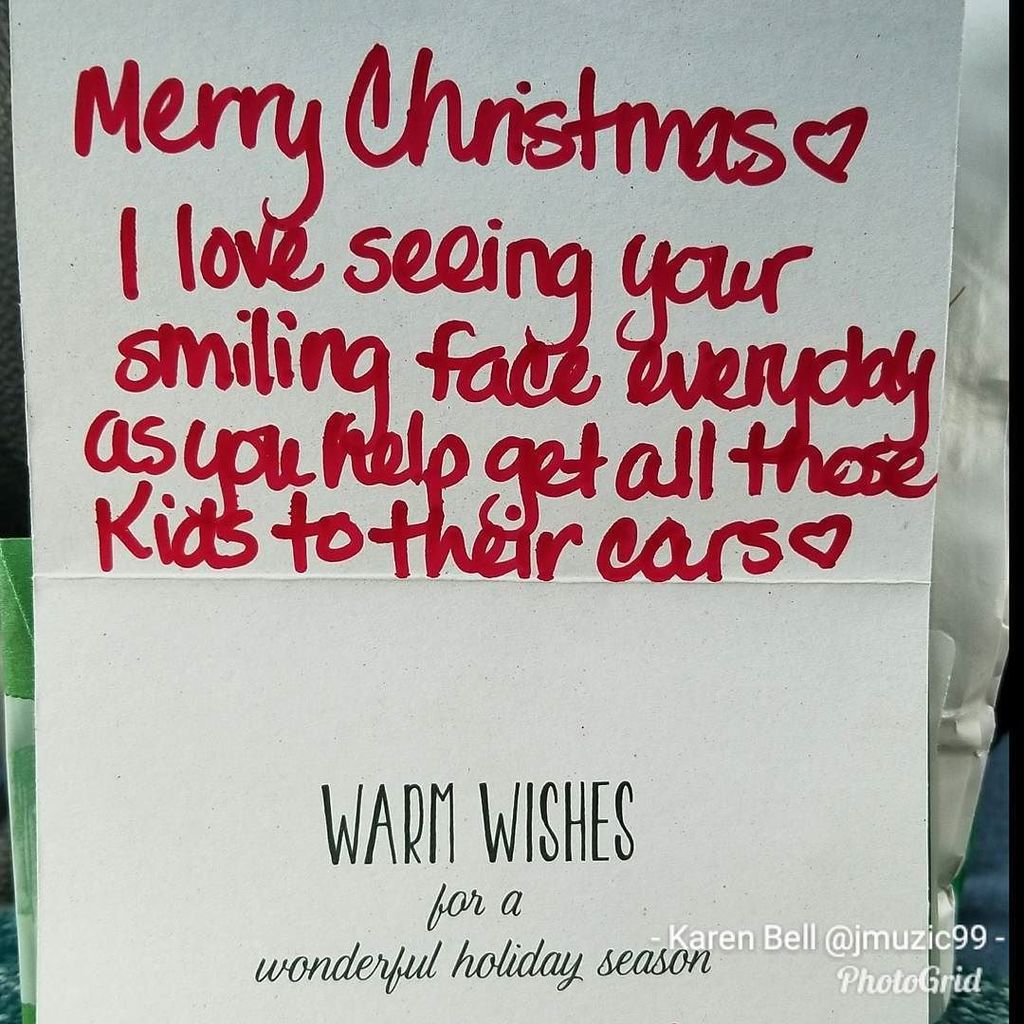 Merry Christmas♡
I love seeing your
smiling face everyday
as you help get all those
Kids to their cars♡
WARM WISHES
for a
wonderful holiday season
- Karen Bell @jmuzic99 -
PhotoGrid